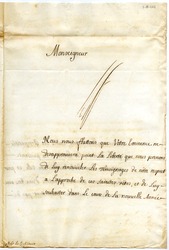 Monseigneur
Nous nous flattons que Votre Eminence ne
desapprouvera point la liberté que nous prenons
de luy renouveler les témoignages de notre respect
a l'approche de ces saintes fêtes, et de luy
souhaiter dans le cours de la nouvelle Année